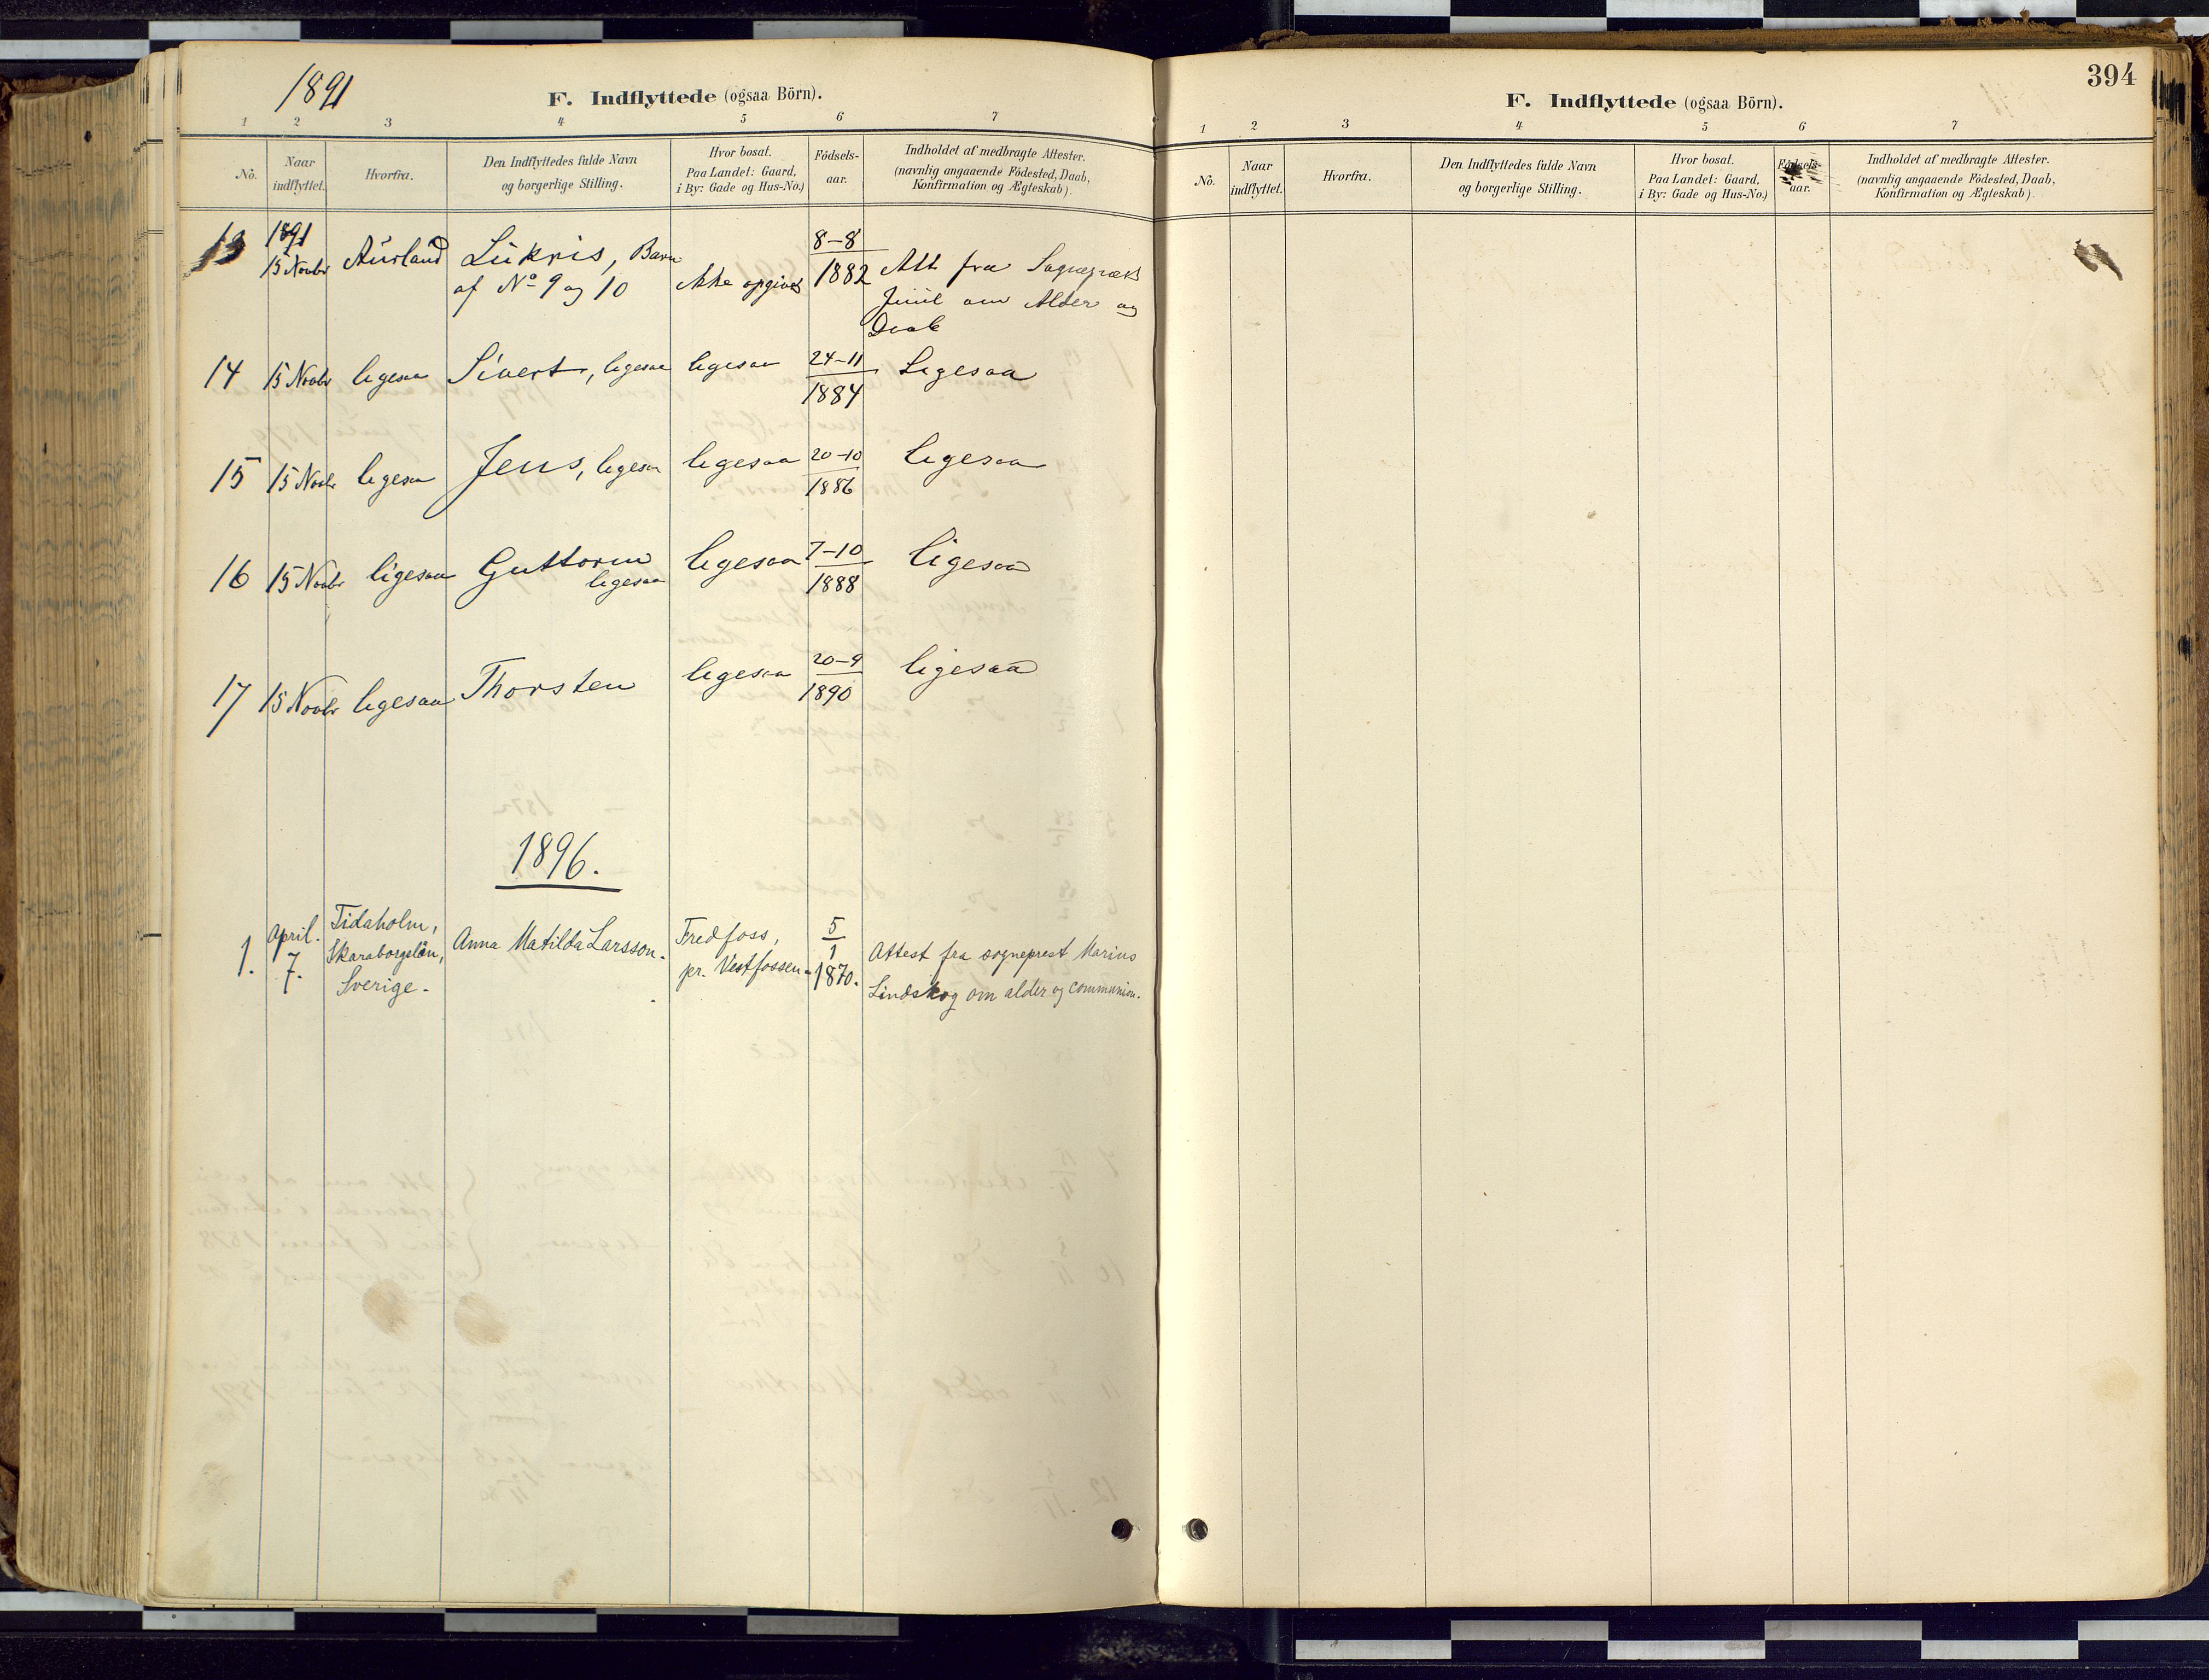 1891
F. Indflyttede (ogsaa Börn).
1 2 3 4 5 6 7
No.
Naar indflyttet.
Hvorfra.
Den Indflyttedes fulde Navn
og borgerlige Stilling.
Hvor bosat.
Paa Landet: Gaard,
i By: Gade og Hus-No.)
Födsels-
aar.
Indholdet af medbragte Attester.
(navnlig angaaende Födested, Daab,
Konfirmation og Ægteskab).
13 1891 15 Novbr Aurland Lukris, Barn
af No 9 og 10 Ikke opgivet 8-8 1882 Att. fra Sognepræst
Juul om Alder og
Daab
14 15 Novbr ligesaa Sivert, ligesaa ligesaa 24-11 1884 Ligesaa
15 15 Novbr ligesaa Jens, ligesaa ligesaa 20-10 1886 ligesaa
16 15 Novbr ligesaa Guttorm
ligesaa ligesaa 7-10 1888 ligesaa
17 15 Novbr ligesaa Thorsten ligesaa 20-9 1890 ligesaa
1896.
1. April. 7. Tidaholm,
Skaraborgslän,
Sverige. Anna Matilda Larsson. Fredfoss,
pr. Vestfossen. 5 1 1870. Attest fra sogneprest Marius
Lindskog om alder og communion.
394
F. Indflyttede (ogsaa Börn).
1 2 3 4 5 6 7
No.
Naar
indflyttet.
Hvorfra.
Den Indflyttedes fulde Navn
og borgerlige Stilling.
Hvor bosat.
Paa Landet: Gaard,
i By: Gade og Hus-No.)
Födsels-
aar.
Indholdet af medbragte Attester.
(navnlig angaaende Födested, Daab,
Konfirmation og Ægteskab).